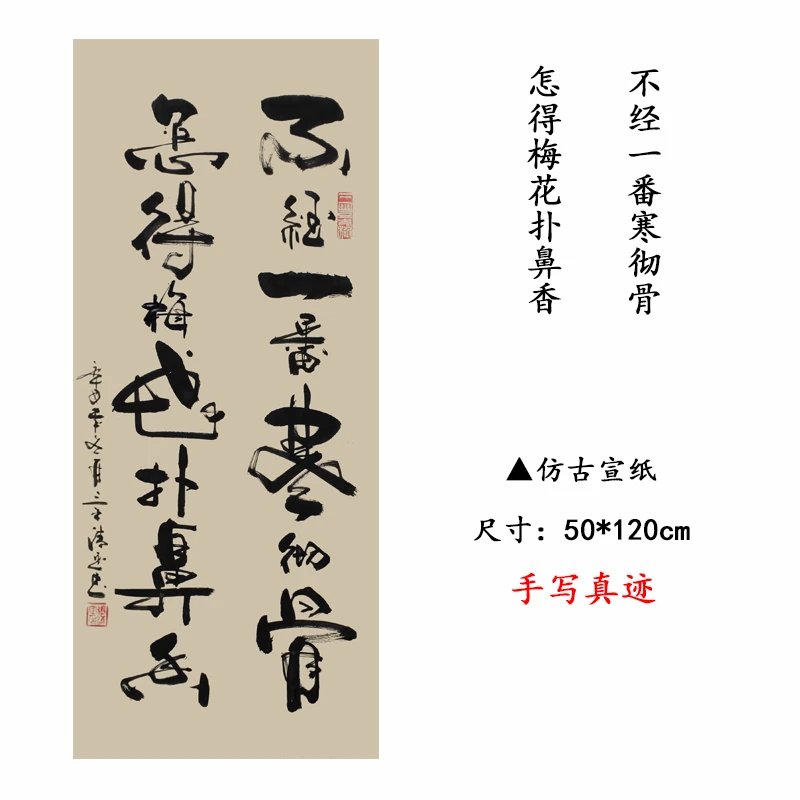 不经一番寒彻骨
怎得梅花扑鼻香
不经一番寒彻骨
怎得梅花扑鼻香
▲仿古宣纸
尺寸：50*120cm
手写真迹